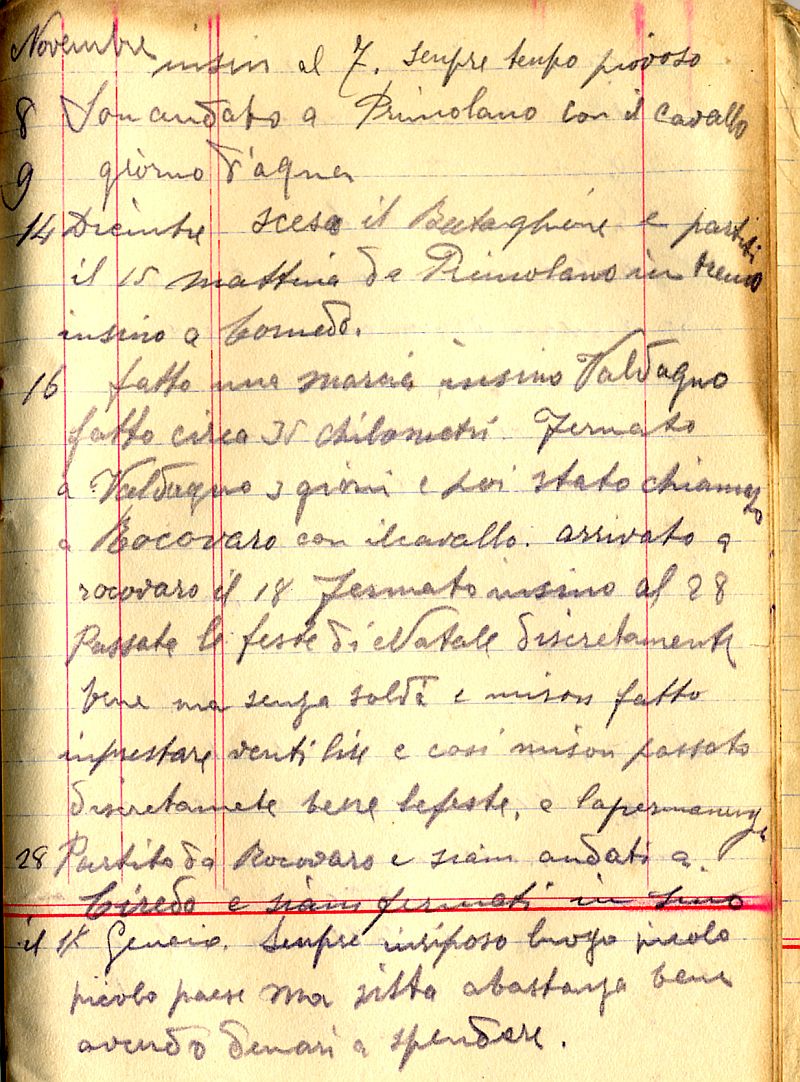 Novembre insin al 7. senpre tenpo piovoso
8 Son andato a Primolano con il cavallo
9 giorno d'aqua
14 Dicinbre scesa il Bataghione e partiti
il 15 mattina da Primolano in treno
insino a Cornedo.
16 fatto una marcia insino Valdagno
fatto circa 35 chilometri. Fermato
a Valdagno 3 giorni e poi stato chiamato
a Rocovaro con ilcavallo. arrivato a
rocovaro il 18 Fermato insino al 28
Passate le feste di Natale discretamente
bene ma senza soldi e mison fatto
inprestare venti lire e cosi mison passato
discretamete bene lefeste, e lapermanenza
28 Partito da Rocovaro e siam andati a
Ciredo e siam fermati in sino
il Genaio. Senpre inriposo luogo picolo
picolo paese ma sitta abastanza bene
avendo denari a spendere.